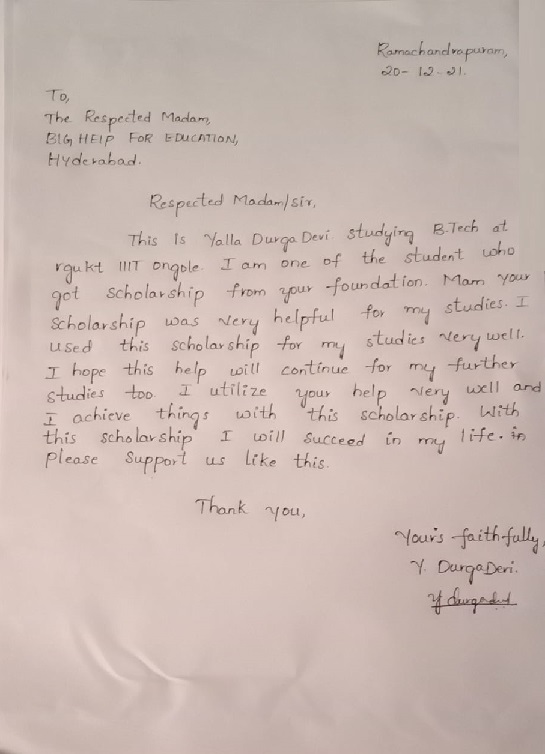 Ramachandrapuram,
20-12-21.
To,
The Respected Madam,
BIG HElP FOR EDUCATION,
Hyderabad.
Respected Madam/sir,
This Is Yalla Durga Devi studying B.Tech at
rgukt IIIT ongole. I am one of the student who
got scholarship from your foundation. Mam your
scholarship was very helpful for my studies. I
used this scholarship for my studies very well.
I hope this help will continue for my further
studies too. I utilize your help very well and
I achieve things with this scholarship. With
this scholarship I will succeed in my life. in
please support us like this.
Thank you,
Your's faithfully,
Y. Durga Devi.
Y Durgadevi